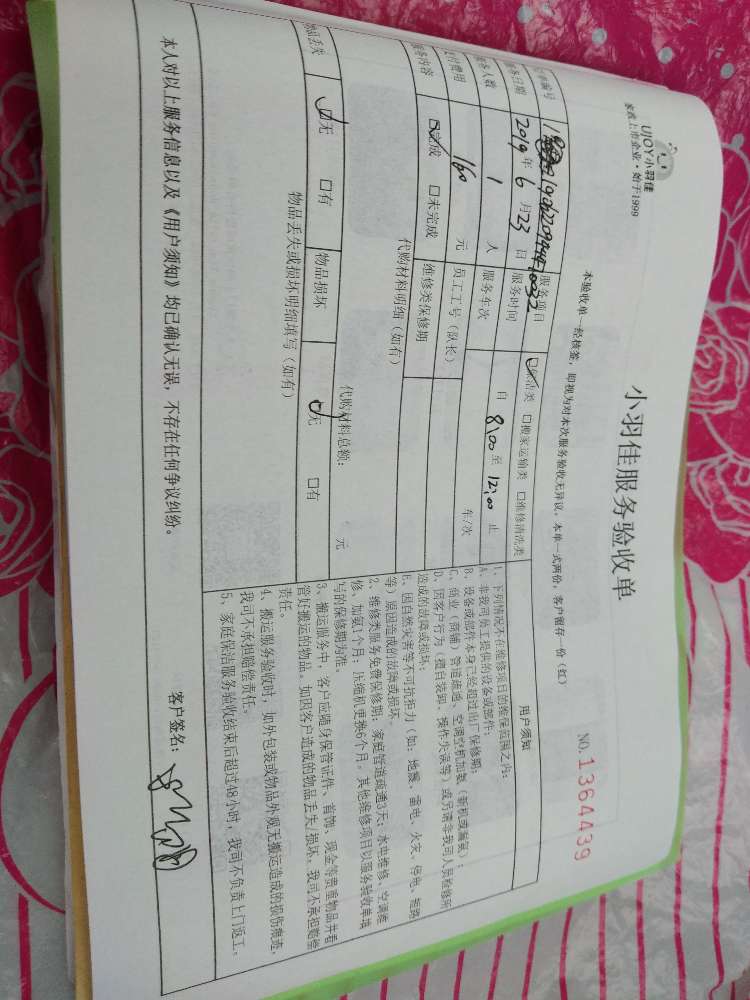 UJOY小羽佳
家政上市企业·始于1999
小羽佳服务验收单
NO.1364439
本验收单一经核签，即视为对本次服务验收无异议。本单一式两份，客户留存一份（红）
订单编号
服务项目 保洁类 搬家运输类 维修清洗类
服务日期 2019年6月23日 服务时间 自 8:00 至 12:00 止
服务人数 1 人 服务车次 车/次
支付费用 160 元 员工工号（队长）
服务内容 完成 未完成 维修类保修期
代购材料明细（如有）
代购材料总额： 元
物品丢失 无 有 物品损坏 无 有
物品丢失或损坏明细填写（如有）
用户须知
1、下列情况不在维修项目的维保范围之内：
A、非我司员工提供的设备或部件；
B、设备或部件本身已经超过出厂保修期；
C、商业（商铺）管道疏通、空调空机加氨（新机或漏氨）；
D、因客户行为（擅自装卸、操作失误等）或另请非我司人员检修所
造成的故障或损坏；
E、因自然灾害等不可抗拒力（如：地震、雷电、火灾、停电、短路
等）原因造成的故障或损坏。
2、维修类服务免费保修期：家庭管道疏通3天；水电维修、空调维
修、加氨1个月；压缩机更换6个月。其他维修项目以服务验收单填
写的保修期为准。
3、搬运服务中，客户应随身保管证件、首饰、现金等贵重物品并看
管好搬运的物品。如因客户造成的物品丢失/损坏，我司不承担赔偿
责任。
4、搬运服务验收时，如外包装或物品外观无搬运造成的损伤痕迹，
我司不承担赔偿责任。
5、家庭保洁服务验收结束后超过48小时，我司不负责上门返工。
本人对以上服务信息以及《用户须知》均已确认无误，不存在任何争议纠纷。
客户签名：